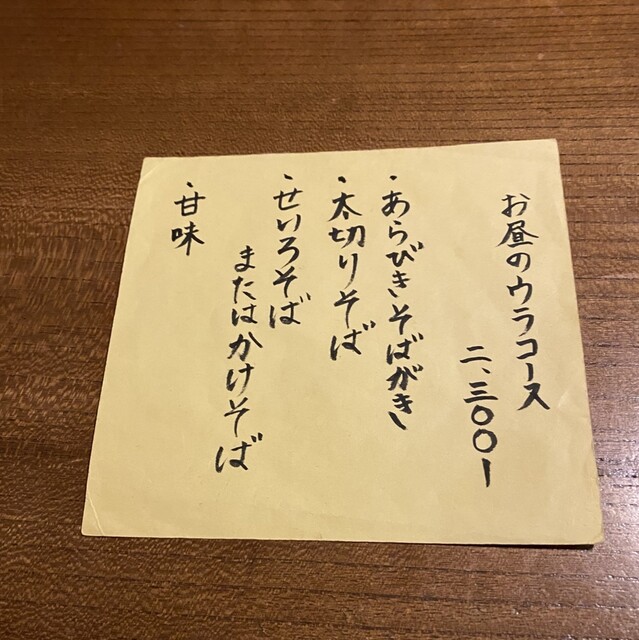 お昼のウラコース
二、三〇〇ー
・あらびきそばがき
・太切りそば
・せいろそば
またはかけそば
・甘味